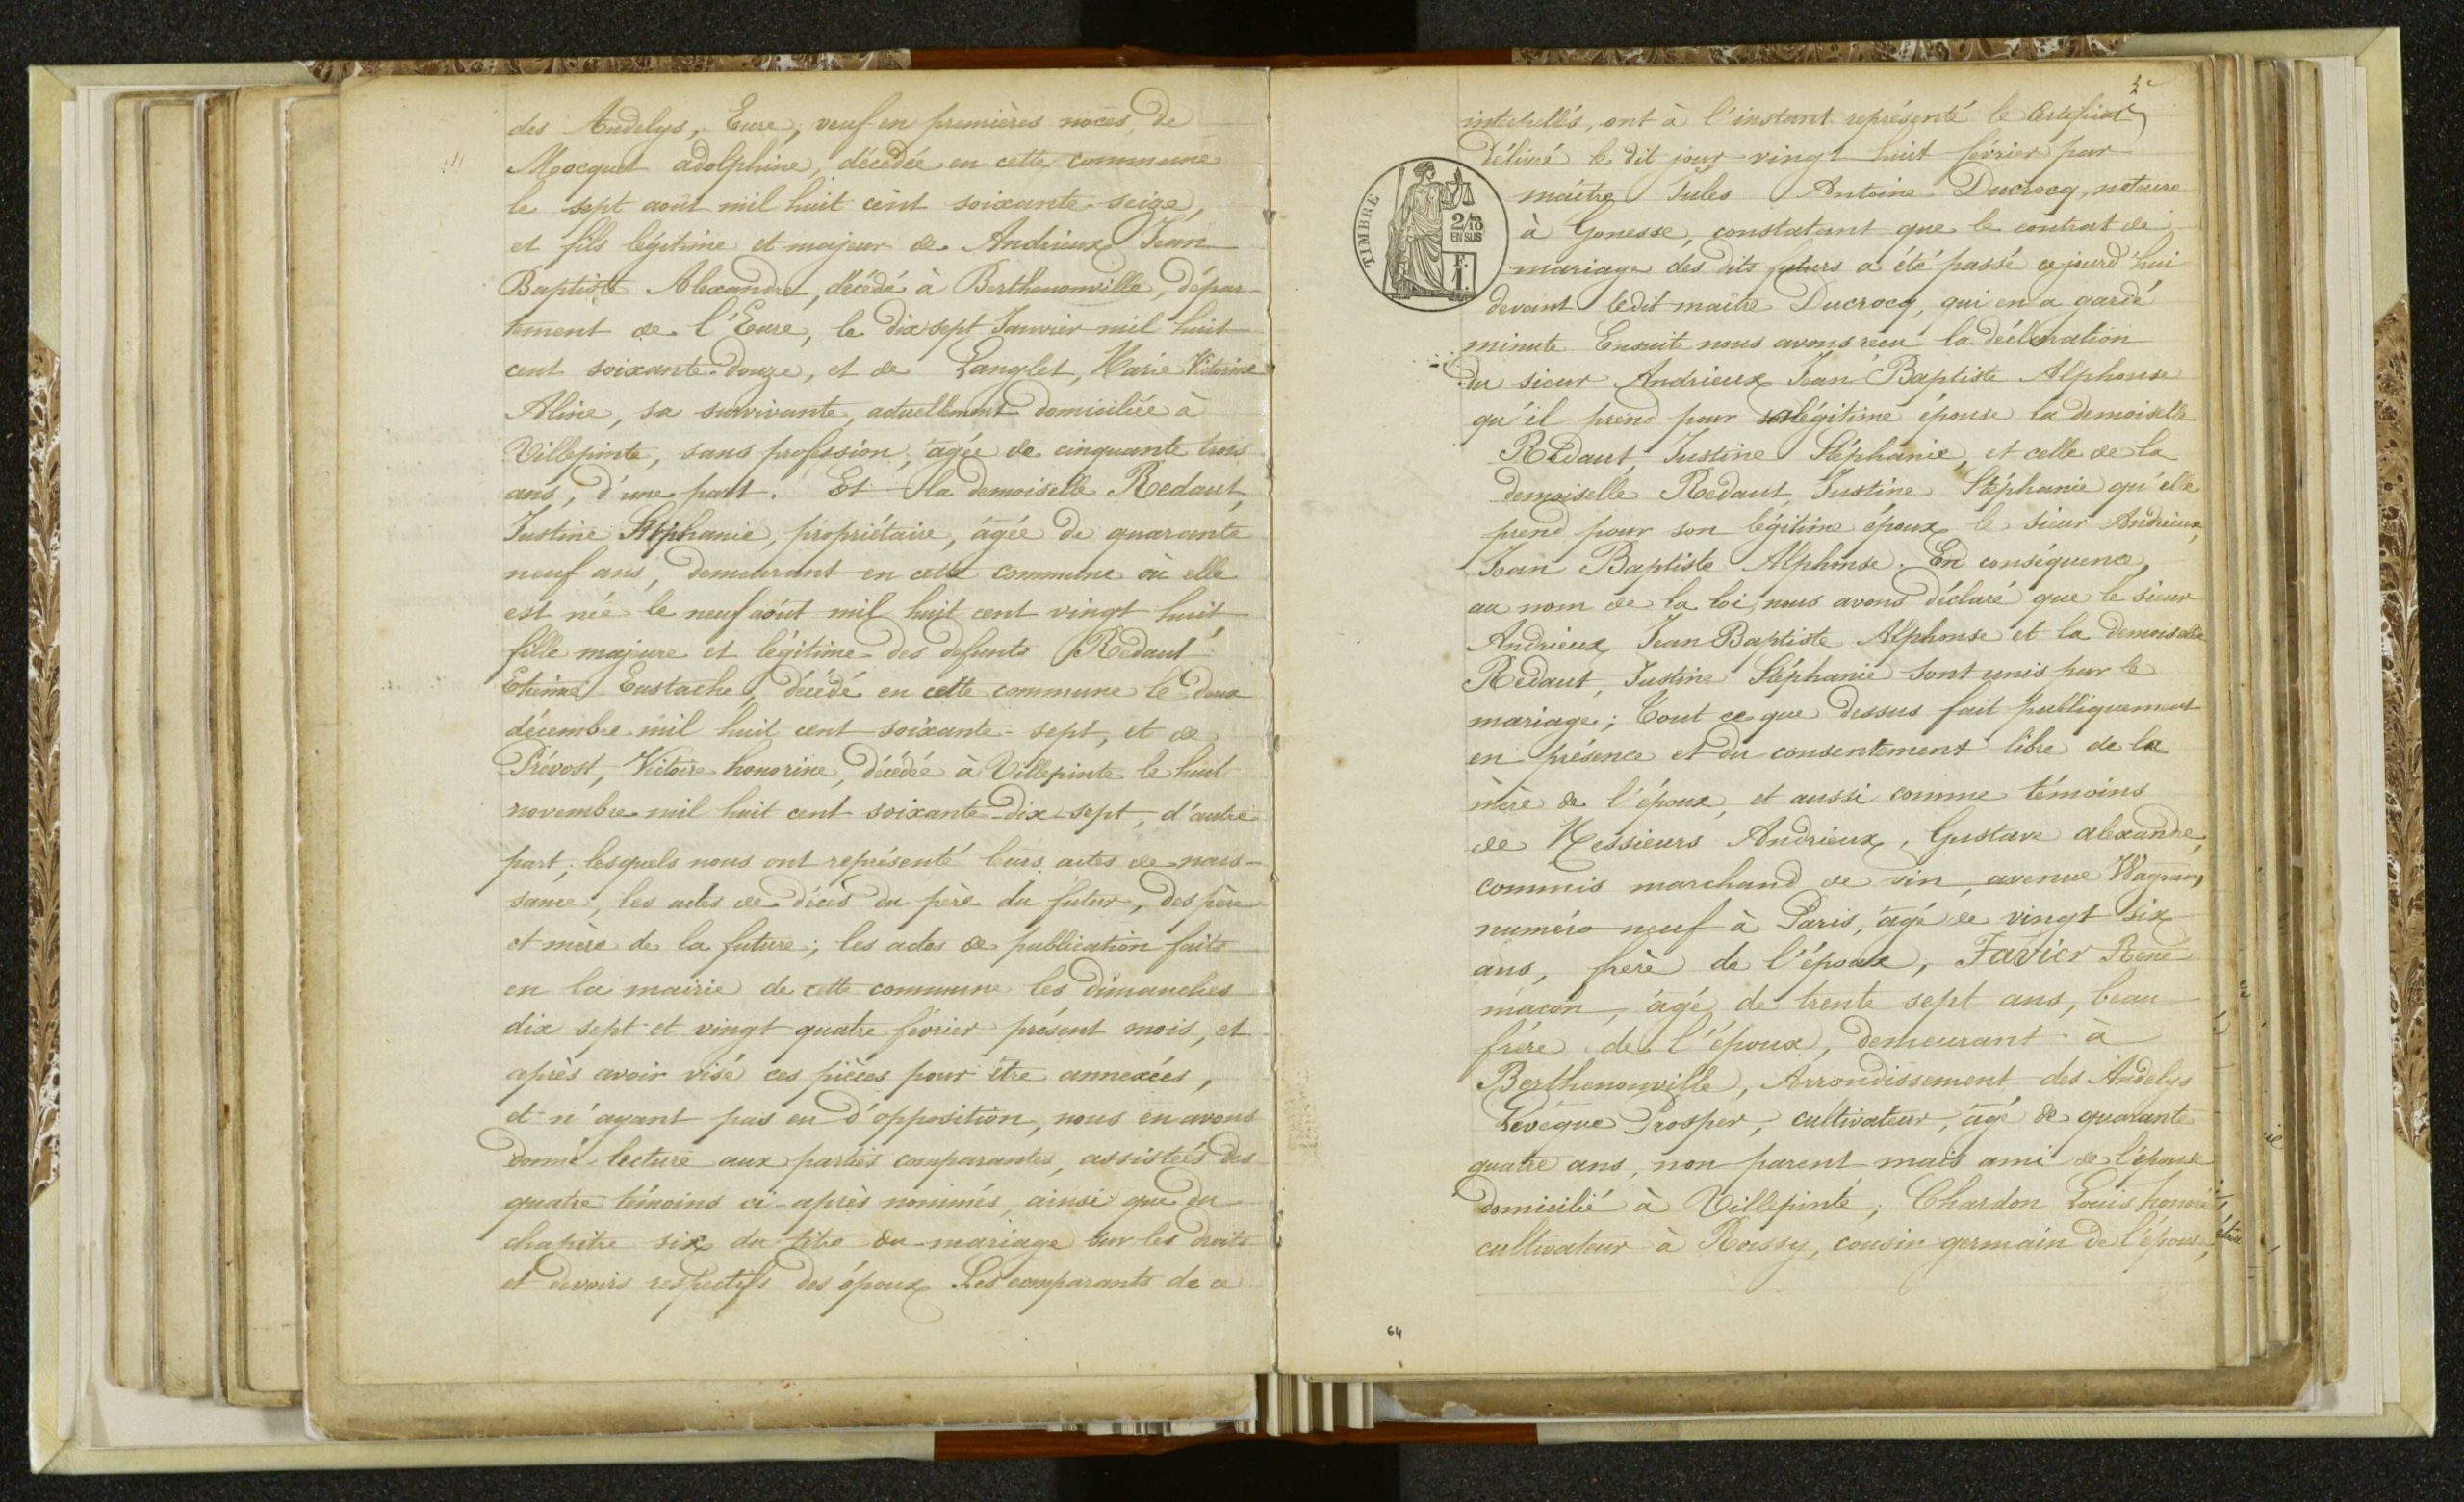 des Andelys, Eure, veuf en premières noces, de
Mocquet adolphine, décédée en cette commune
le sept août mil huit cent soixante-seize,
et fils légitime et majeur de Andrieux Jean
Baptiste Alexandre, décédé à Berthenonville, dépar-
tement de l'Eure, le dix sept Janvier mil huit
cent soixante-douze, et de Langlet, Marie Victorine
Aline, sa survivante, actuellement domiciliée à
Villepinte, sans profession, âgée de cinquante trois
ans, d'une part. Et la demoiselle Redaut,
Justine Stéphanie, propriétaire, âgée de quarante
neuf ans, demeurant en cette commune où elle
est née le neuf août mil huit cent vingt huit,
fille majeure et légitime des defunts Redaut
Etienne Eustache, décédé en cette commune le deux
décembre mil huit cent soixante-sept, et de
Prévost, Victoire honorine, décédée à Villepinte le huit
novembre mil huit cent soixante-dix-sept, d'autre
part; lesquels nous ont représenté leurs actes de nais-
sance, les actes de décès du père du futur, des père
et mère de la future; les actes de publication faits
en la mairie de cette commune les dimanches
dix sept et vingt quatre février présent mois, et
après avoir visé ces pièces pour être annexées,
et n'ayant pas eu d'opposition, nous en avons
donné lecture aux parties comparantes, assistées des
quatre témoins ci-après nommés, ainsi que du
chapitre six du titre du mariage sur les droits
et devoirs respectifs des époux. Les comparants de ce
interpellés, ont à l'instant représenté le certificat
délivré le dit jour vingt huit février par
maître Jules Antoine Ducrocq, notaire
à Gonesse, constatant que le contrat de
mariage des dits futurs a été passé ce jourd'hui
devant ledit maître Ducrocq, qui en a gardé
minute. Ensuite nous avons reçu la déclaration
du sieur Andrieux Jean Baptiste Alphonse
qu'il prend pour sa légitime épouse la demoiselle
Redaut Justine Stéphanie, et celle de la
demoiselle Redaut Justine Stéphanie qu'elle
prend pour son légitime époux le sieur Andrieux,
Jean Baptiste Alphonse. En conséquence,
au nom de la loi, nous avons déclaré que le sieur
Andrieux Jean Baptiste Alphonse et la demoiselle
Redaut, Justine Stéphanie sont unis par le
mariage; Tout ce que dessus fait publiquement
en présence et du consentement libre de la
mère de l'époux, et aussi comme témoins
de Messieurs Andrieux, Gustave alexandre,
commis marchand de vin, avenue Wagram
numéro neuf à Paris, âgé de vingt six
ans, frère de l'époux, Favier René
maçon, âgé de trente sept ans, beau
frère de l'époux, demeurant à
Berthenonville, Arrondissement des Andelys
Levêque Prosper, cultivateur, âgé de quarante
quatre ans, non parent mais ami de l'épouse
domicilié à Villepinte; Chardon Louis honoré
cultivateur à Roissy, cousin germain de l'épouse,
TIMBRE
2/10
EN SUS
F.
1.
64